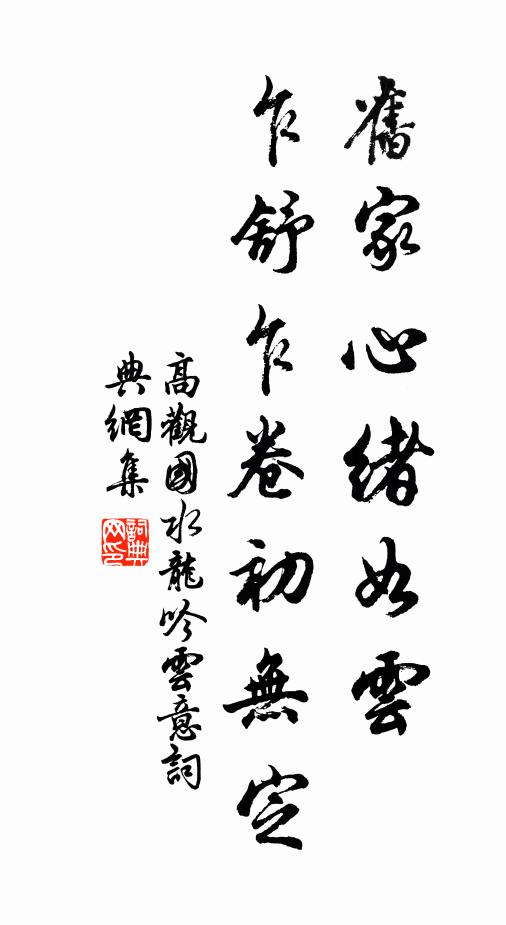 舊家心緒如雲
乍舒乍卷初無定
高觀國水龍吟雲意詞
典網集
詞典网印